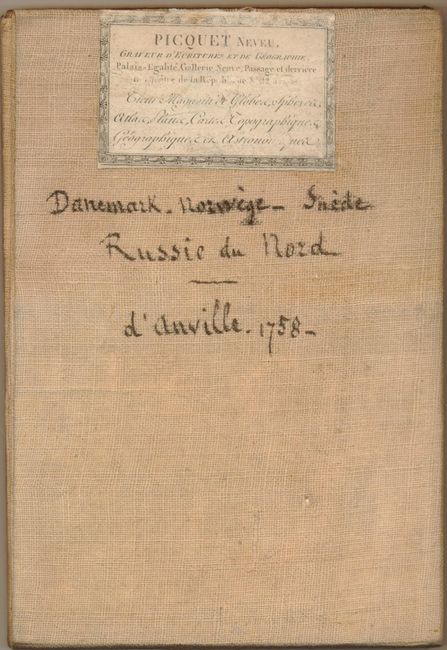 PICQUET NEVEU,
GRAVEUR D'ECRITURES ET DE GÉOGRAPHIE,
Palais-Egalité, Gallerie Neuve, Passage et derriere
de la Répub.
Tient Magasin de Globes, Spheres,
Atlas, Plans, Cartes Topographiques,
Géographiques et Astronomiques
Danemark - Norwège - Suède
Russie du Nord
d'Anville. 1758-